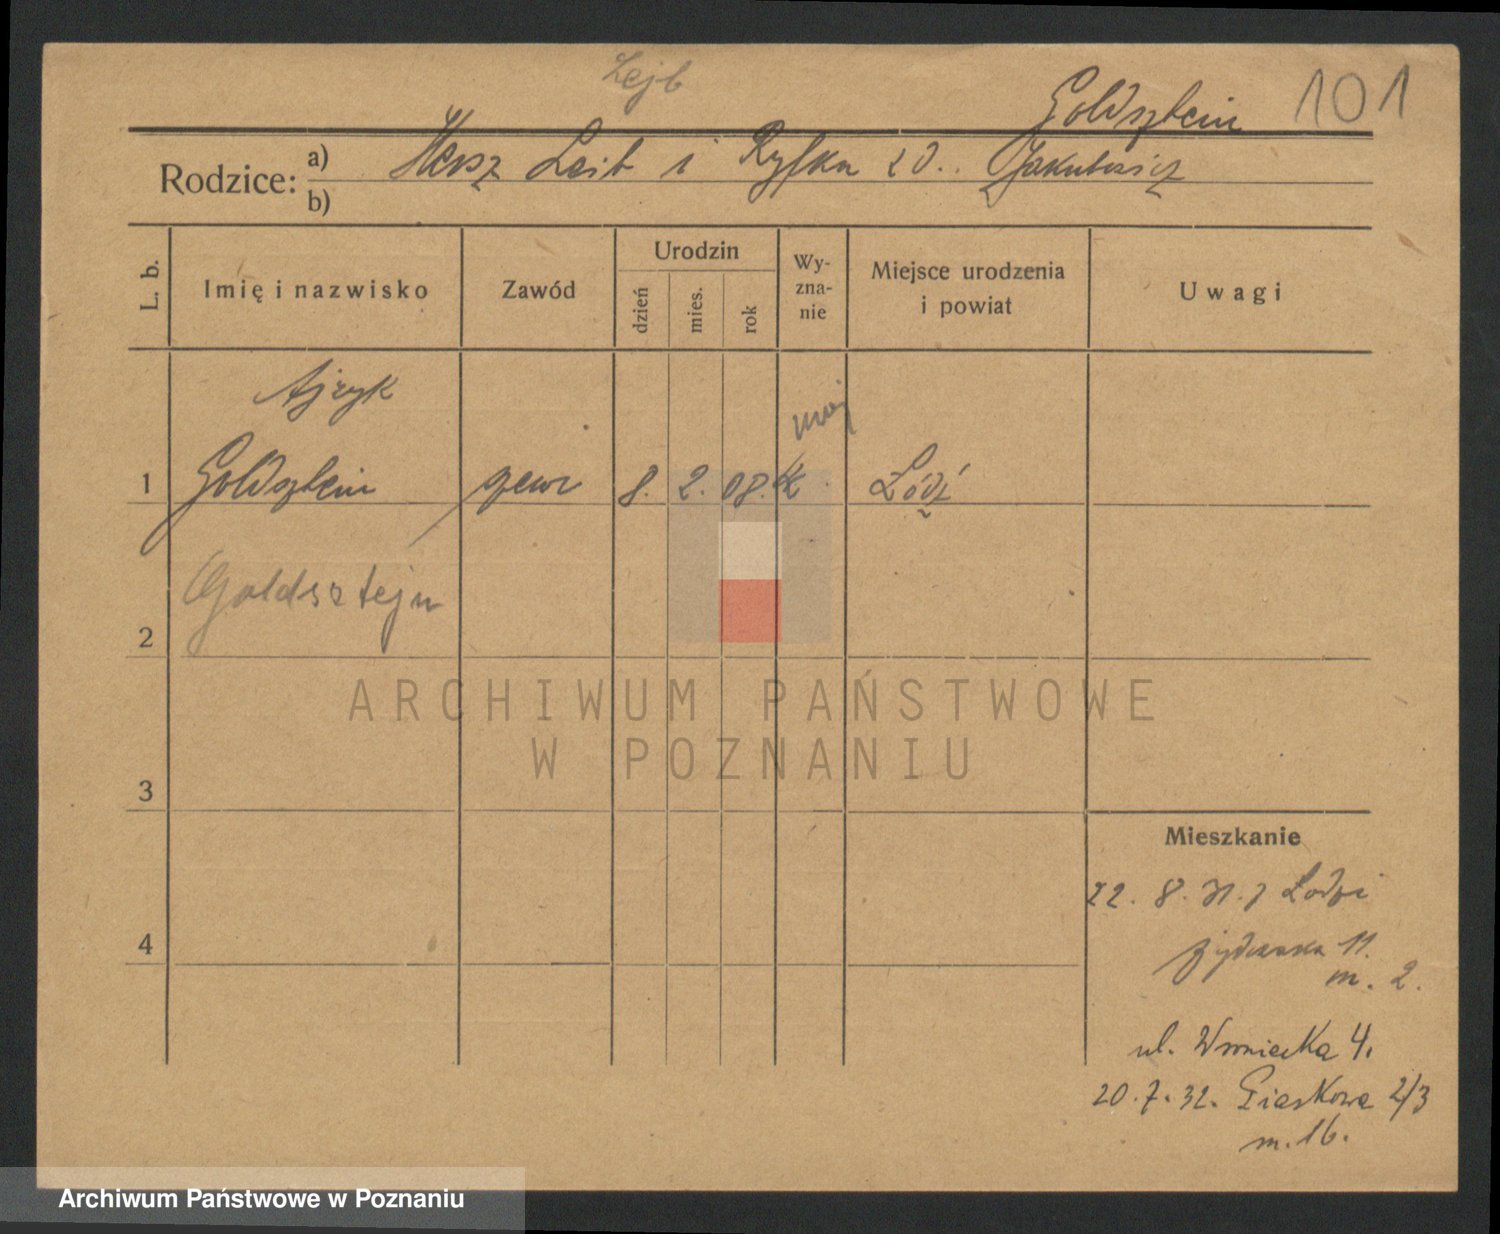 Lejb
Goldsztein 101
Rodzice: a) Hersz Leib i Ryfka zd. Jakubowicz
b)
L. b. Imię i nazwisko Zawód Urodzin dzień mies. rok Wy-zna-nie Miejsce urodzenia i powiat Uwagi
Ajzyk
mojż
1 Goldsztein szewc 8. 2. 08. Łódź
Goldsztejn
2
ARCHIWUM PAŃSTWOWE
W POZNANIU
3
Mieszkanie
22. 8. 31. z Łodzi
4
Żydowska 11.
m. 2.
ul. Wroniecka 4.
20. 7. 32. Piaskowa 2/3
m. 16.
Archiwum Państwowe w Poznaniu